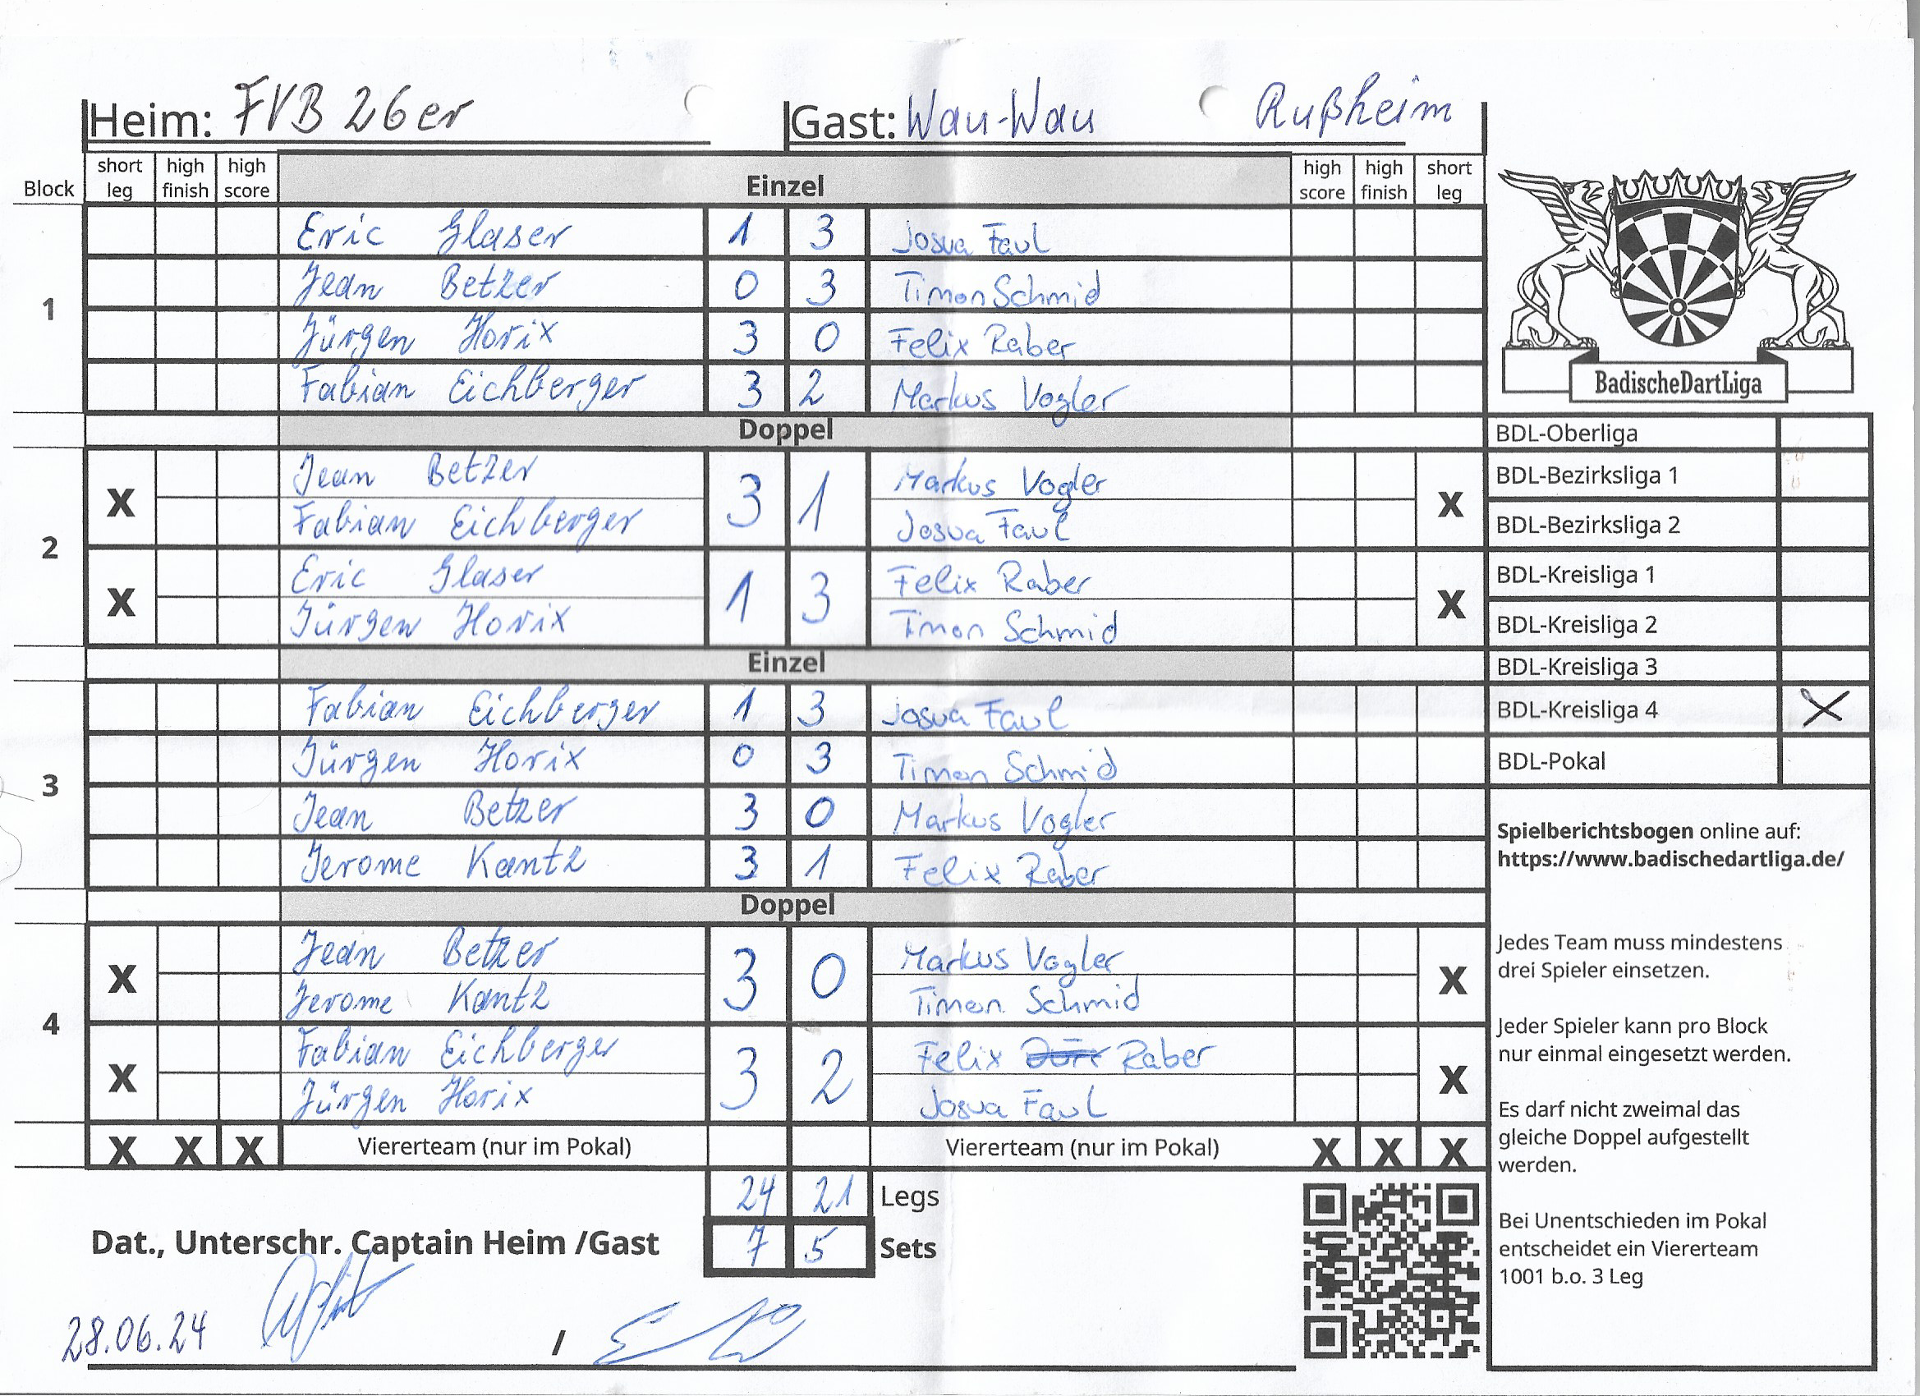 Heim: FVB 26er Gast: Wau-Wau Rußheim
Block short leg high finish high score Einzel high score high finish short leg
1
Eric Glaser 1 3 Josua Faul
Jean Betzer 0 3 Timon Schmid
Jürgen Horix 3 0 Felix Raber
Fabian Eichberger 3 2 Markus Vogler
BadischeDartLiga
Doppel
2
X Jean Betzer 3 1 Markus Vogler X
Fabian Eichberger Josua Faul
X Eric Glaser 1 3 Felix Raber X
Jürgen Horix Timon Schmid
Einzel
3
Fabian Eichberger 1 3 Josua Faul
Jürgen Horix 0 3 Timon Schmid
Jean Betzer 3 0 Markus Vogler
Jerome Kantz 3 1 Felix Raber
Doppel
4
X Jean Betzer 3 0 Markus Vogler X
Jerome Kantz Timon Schmid
X Fabian Eichberger 3 2 Felix Raber X
Jürgen Horix Josua Faul
X X X Viererteam (nur im Pokal) Viererteam (nur im Pokal) X X X
24 21 Legs
7 5 Sets
Dat., Unterschr. Captain Heim /Gast
28.06.24 /
BDL-Oberliga
BDL-Bezirksliga 1
BDL-Bezirksliga 2
BDL-Kreisliga 1
BDL-Kreisliga 2
BDL-Kreisliga 3
BDL-Kreisliga 4 X
BDL-Pokal
Spielberichtsbogen online auf:
https://www.badischedartliga.de/
Jedes Team muss mindestens
drei Spieler einsetzen.
Jeder Spieler kann pro Block
nur einmal eingesetzt werden.
Es darf nicht zweimal das
gleiche Doppel aufgestellt
werden.
Bei Unentschieden im Pokal
entscheidet ein Viererteam
1001 b.o. 3 Leg